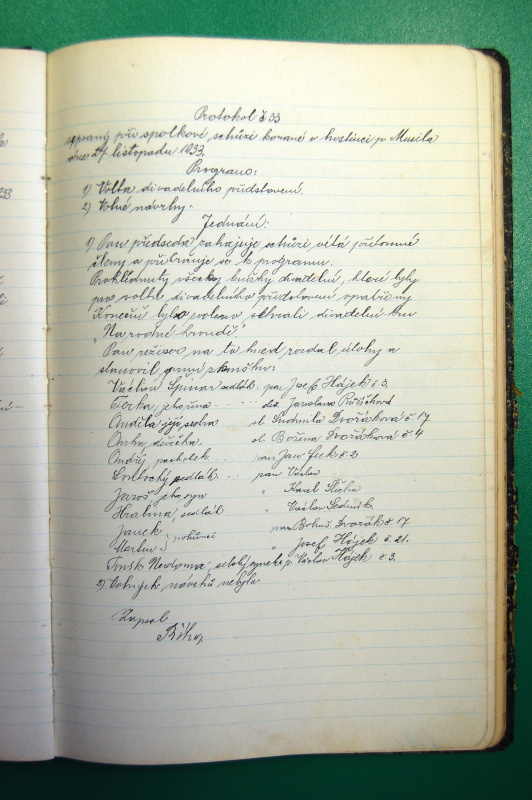 Protokol č 33
sepsaný při spolkové schůzi konané v hostinci p. Musila
dne 27. listopadu 1933.
Program:
1) Volba divadelního představení.
2) Volné návrhy.
Jednání:
1) Pan předseda zahajuje schůzi vítá přítomné
členy a přikračuje se k programu.
Prohlédnuty všecky knížky divadelní, které byly
pro volbu divadelního představení opatřeny
Konečně bylo zvoleno sehráti divadelní hru
„Na rodné hroudě."
Pan režisér na to hned rozdal úlohy a
stanovil první zkoušku:
Václav Špinar sedlák. pan Josef Hájek č 3.
dcera ... Jaroslava Růžičková
Andula její sestra sl Ludmila Dvořáková č 17
Anka, děvečka sl. Božena Dvořáková č 4
Ondřej pacholek ... pan Jan č 2
sedlák ... pan Václav
Jaroš, jeho syn " Karel
Hralina, sedlák " Václav
Janek pan Bohuš Dvořák č 17
Martin } pohůnci " Josef Hájek č. 21.
Nedoma, synek p. Václav Hájek č 3.
2) Volných návrhů nebylo
Zapsal
Říha